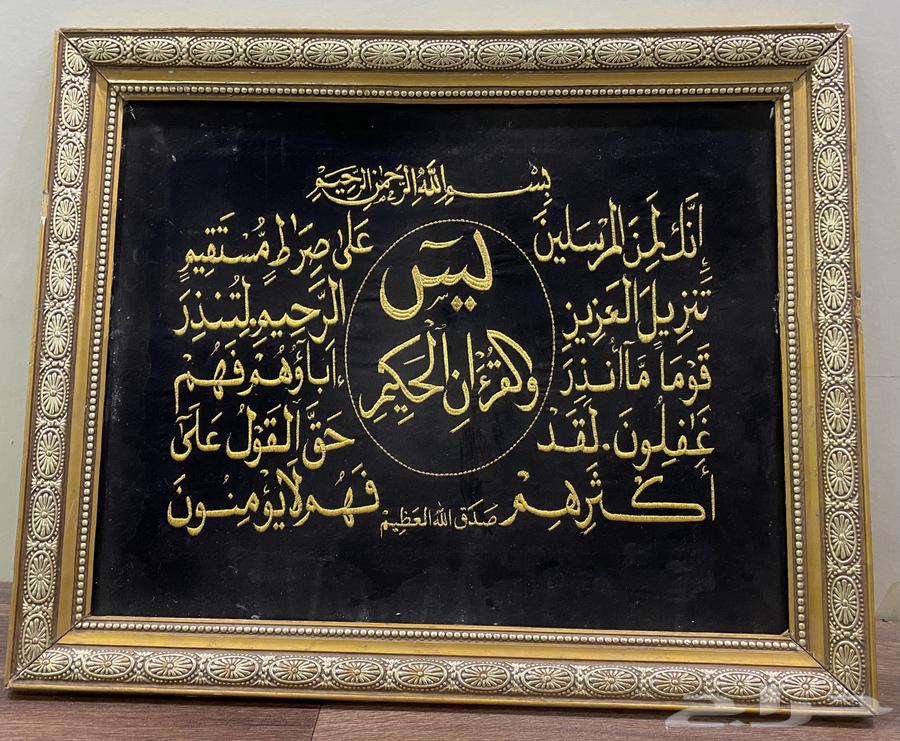 بِسْمِ اللَّهِ الرَّحْمٰنِ الرَّحِيمِ
يسٓ
وَالْقُرْءَانِ الْحَكِيمِ
إِنَّكَ لَمِنَ الْمُرْسَلِينَ عَلَىٰ صِرَٰطٍ مُّسْتَقِيمٍ
تَنزِيلَ الْعَزِيزِ الرَّحِيمِ . لِتُنذِرَ
قَوْمًا مَّآ أُنذِرَ ءَابَآؤُهُمْ فَهُمْ
غَٰفِلُونَ . لَقَدْ حَقَّ الْقَوْلُ عَلَىٰٓ
أَكْثَرِهِمْ فَهُمْ لَا يُؤْمِنُونَ
صَدَقَ اللهُ الْعَظِيمْ
حراج